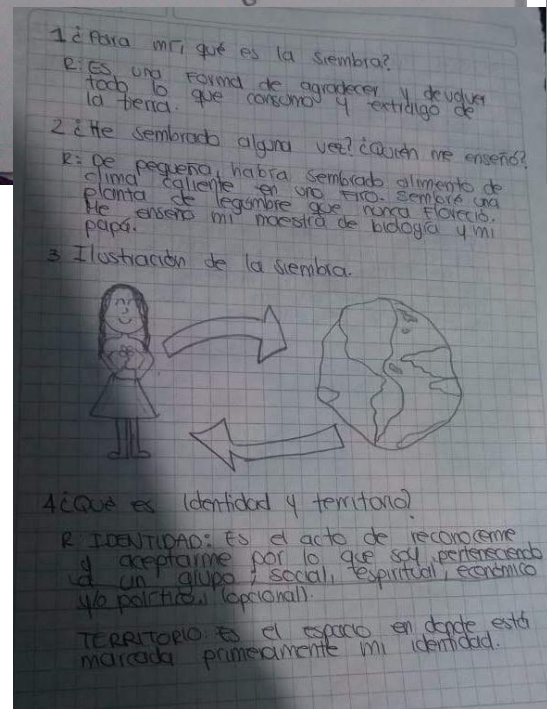 1 ¿Para mí, qué es la siembra?
R: Es una forma de agradecer y devolver
todo lo que consumo y extraigo de
la tierra.
2 ¿He sembrado alguna vez? ¿Quién me enseñó?
R: De pequeña, habra sembrado alimento de
clima caliente en una finca. Sembré una
planta de legumbre que nunca floreció.
Me enseñó mi maestra de biología y mi
papá.
3 Ilustración de la siembra.
4 ¿Qué es identidad y territorio?
R IDENTIDAD: Es el acto de reconocerme
y aceptarme por lo que soy, perteneciendo
a un grupo, social, espiritual, económico
y/o político, (opcional).
TERRITORIO: Es el espacio en donde está
marcada primeramente mi identidad.